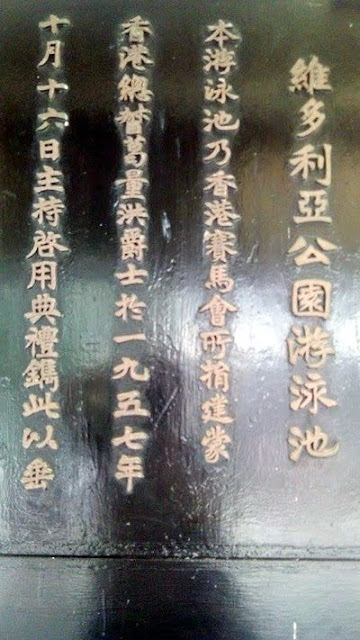 維多利亞公園游泳池
本游泳池乃香港賽馬會所捐建蒙
香港總督葛量洪爵士於一九五七年
十月十六日主持啓用典禮鐫此以垂